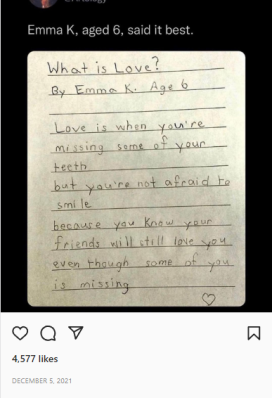 Emma K, aged 6, said it best.
What is Love?
By Emma K. Age 6
Love is when you're
missing some of your
teeth
but you're not afraid to
smile
because you know your
friends will still love you
even though some of you
is missing
4,577 likes
DECEMBER 5, 2021